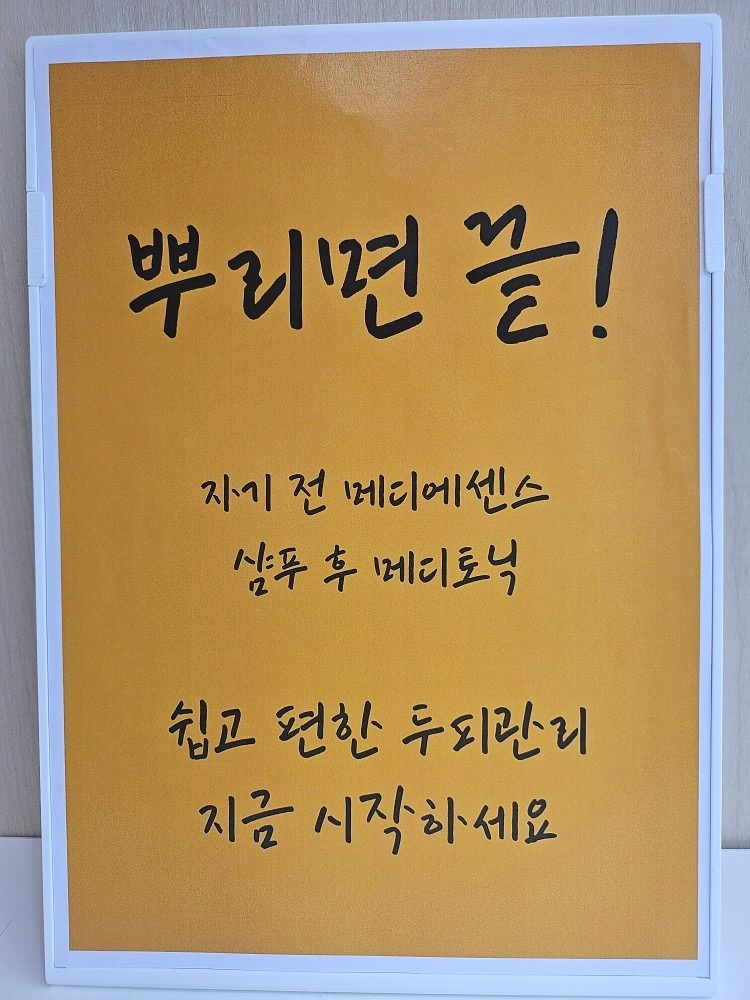 뿌리면 끝!
자기 전 메디에센스
샴푸 후 메디토닉
쉽고 편한 두피관리
지금 시작하세요